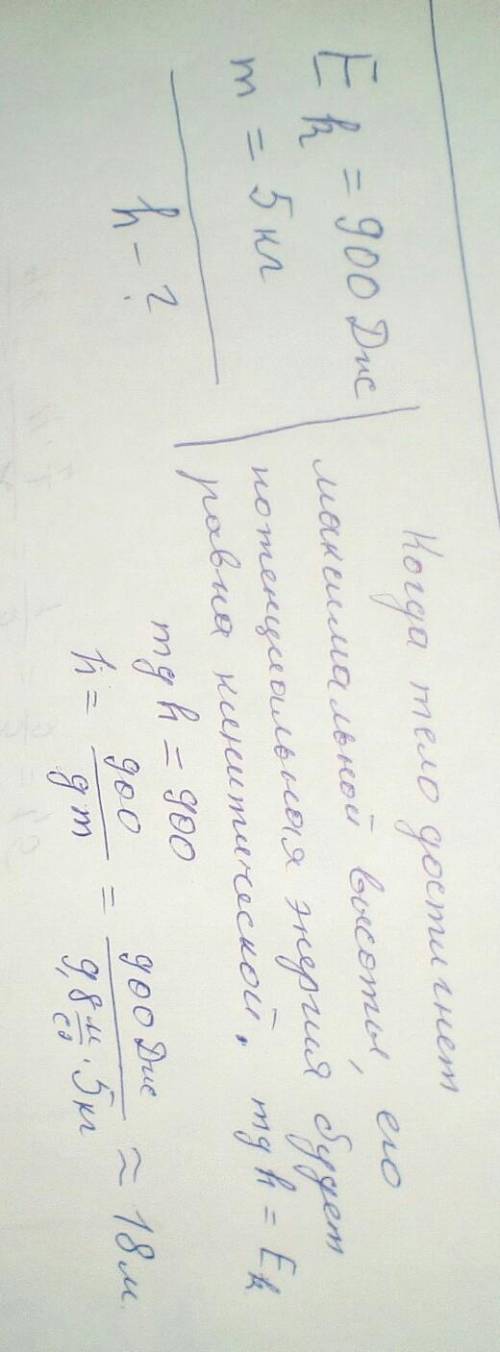 Eк = 900 Дж
m = 5 кг
h - ?
Когда тело достигнет
максимальной высоты, его
потенциальная энергия будет
равна кинитической, mgh = Eк
mgh = 900
h = 900/gm = 900 Дж/9,8 м/с² · 5 кг ≈ 18 м.